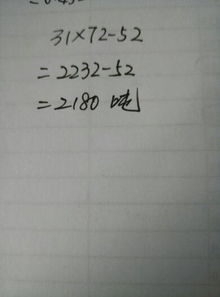 31×72-52
=2232-52
=2180 吨